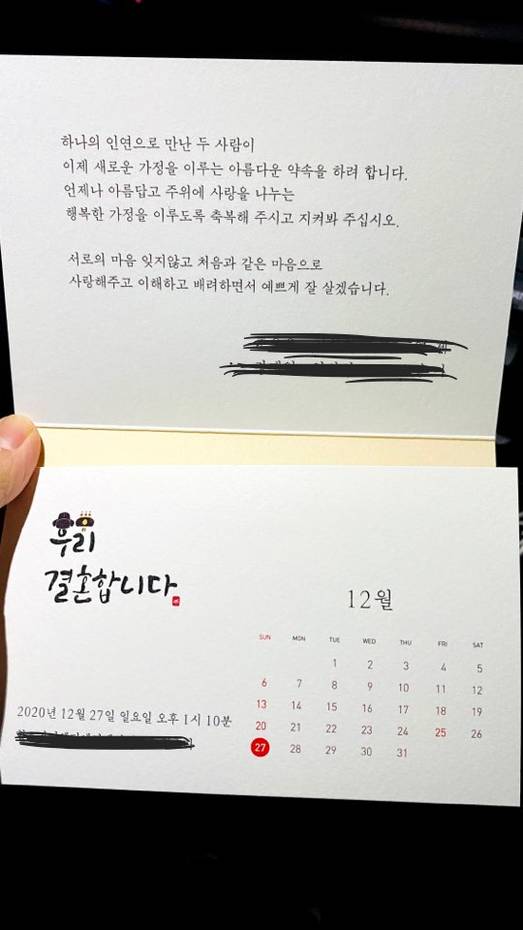 하나의 인연으로 만난 두 사람이
이제 새로운 가정을 이루는 아름다운 약속을 하려 합니다.
언제나 아름답고 주위에 사랑을 나누는
행복한 가정을 이루도록 축복해 주시고 지켜봐 주십시오.
서로의 마음 잊지않고 처음과 같은 마음으로
사랑해주고 이해하고 배려하면서 예쁘게 잘 살겠습니다.
우리
결혼합니다
2020년 12월 27일 일요일 오후 1시 10분
12월
SUN MON TUE WED THU FRI SAT
1 2 3 4 5
6 7 8 9 10 11 12
13 14 15 16 17 18 19
20 21 22 23 24 25 26
27 28 29 30 31